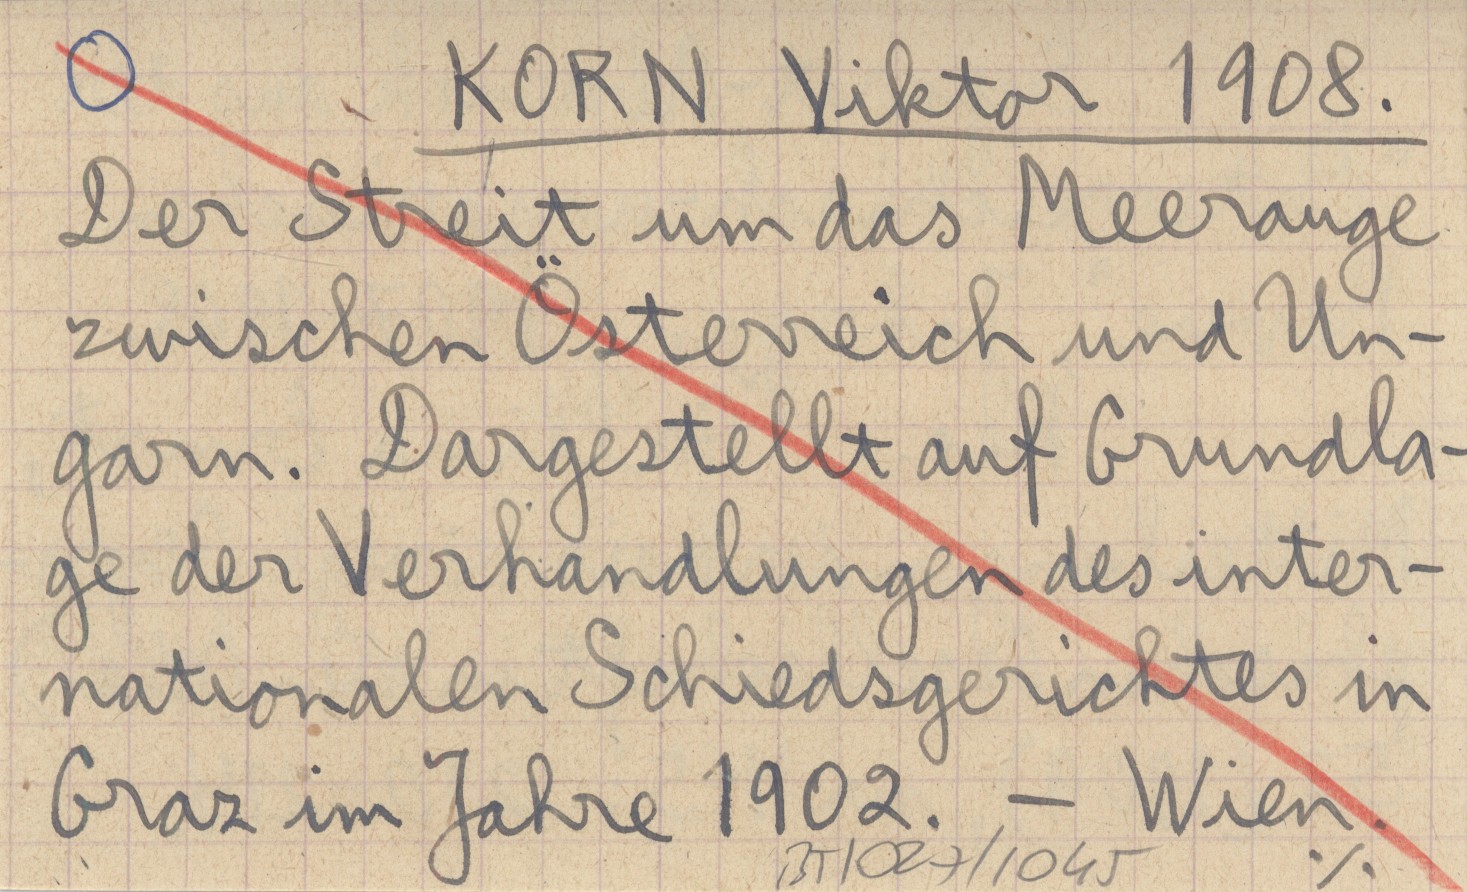 KORN Viktor 1908.
Der Streit um das Meerauge
zwischen Österreich und Un-
garn. Dargestellt auf Grundla-
ge der Verhandlungen des inter-
nationalen Schiedsgerichtes in
Graz im Jahre 1902. — Wien.
./.